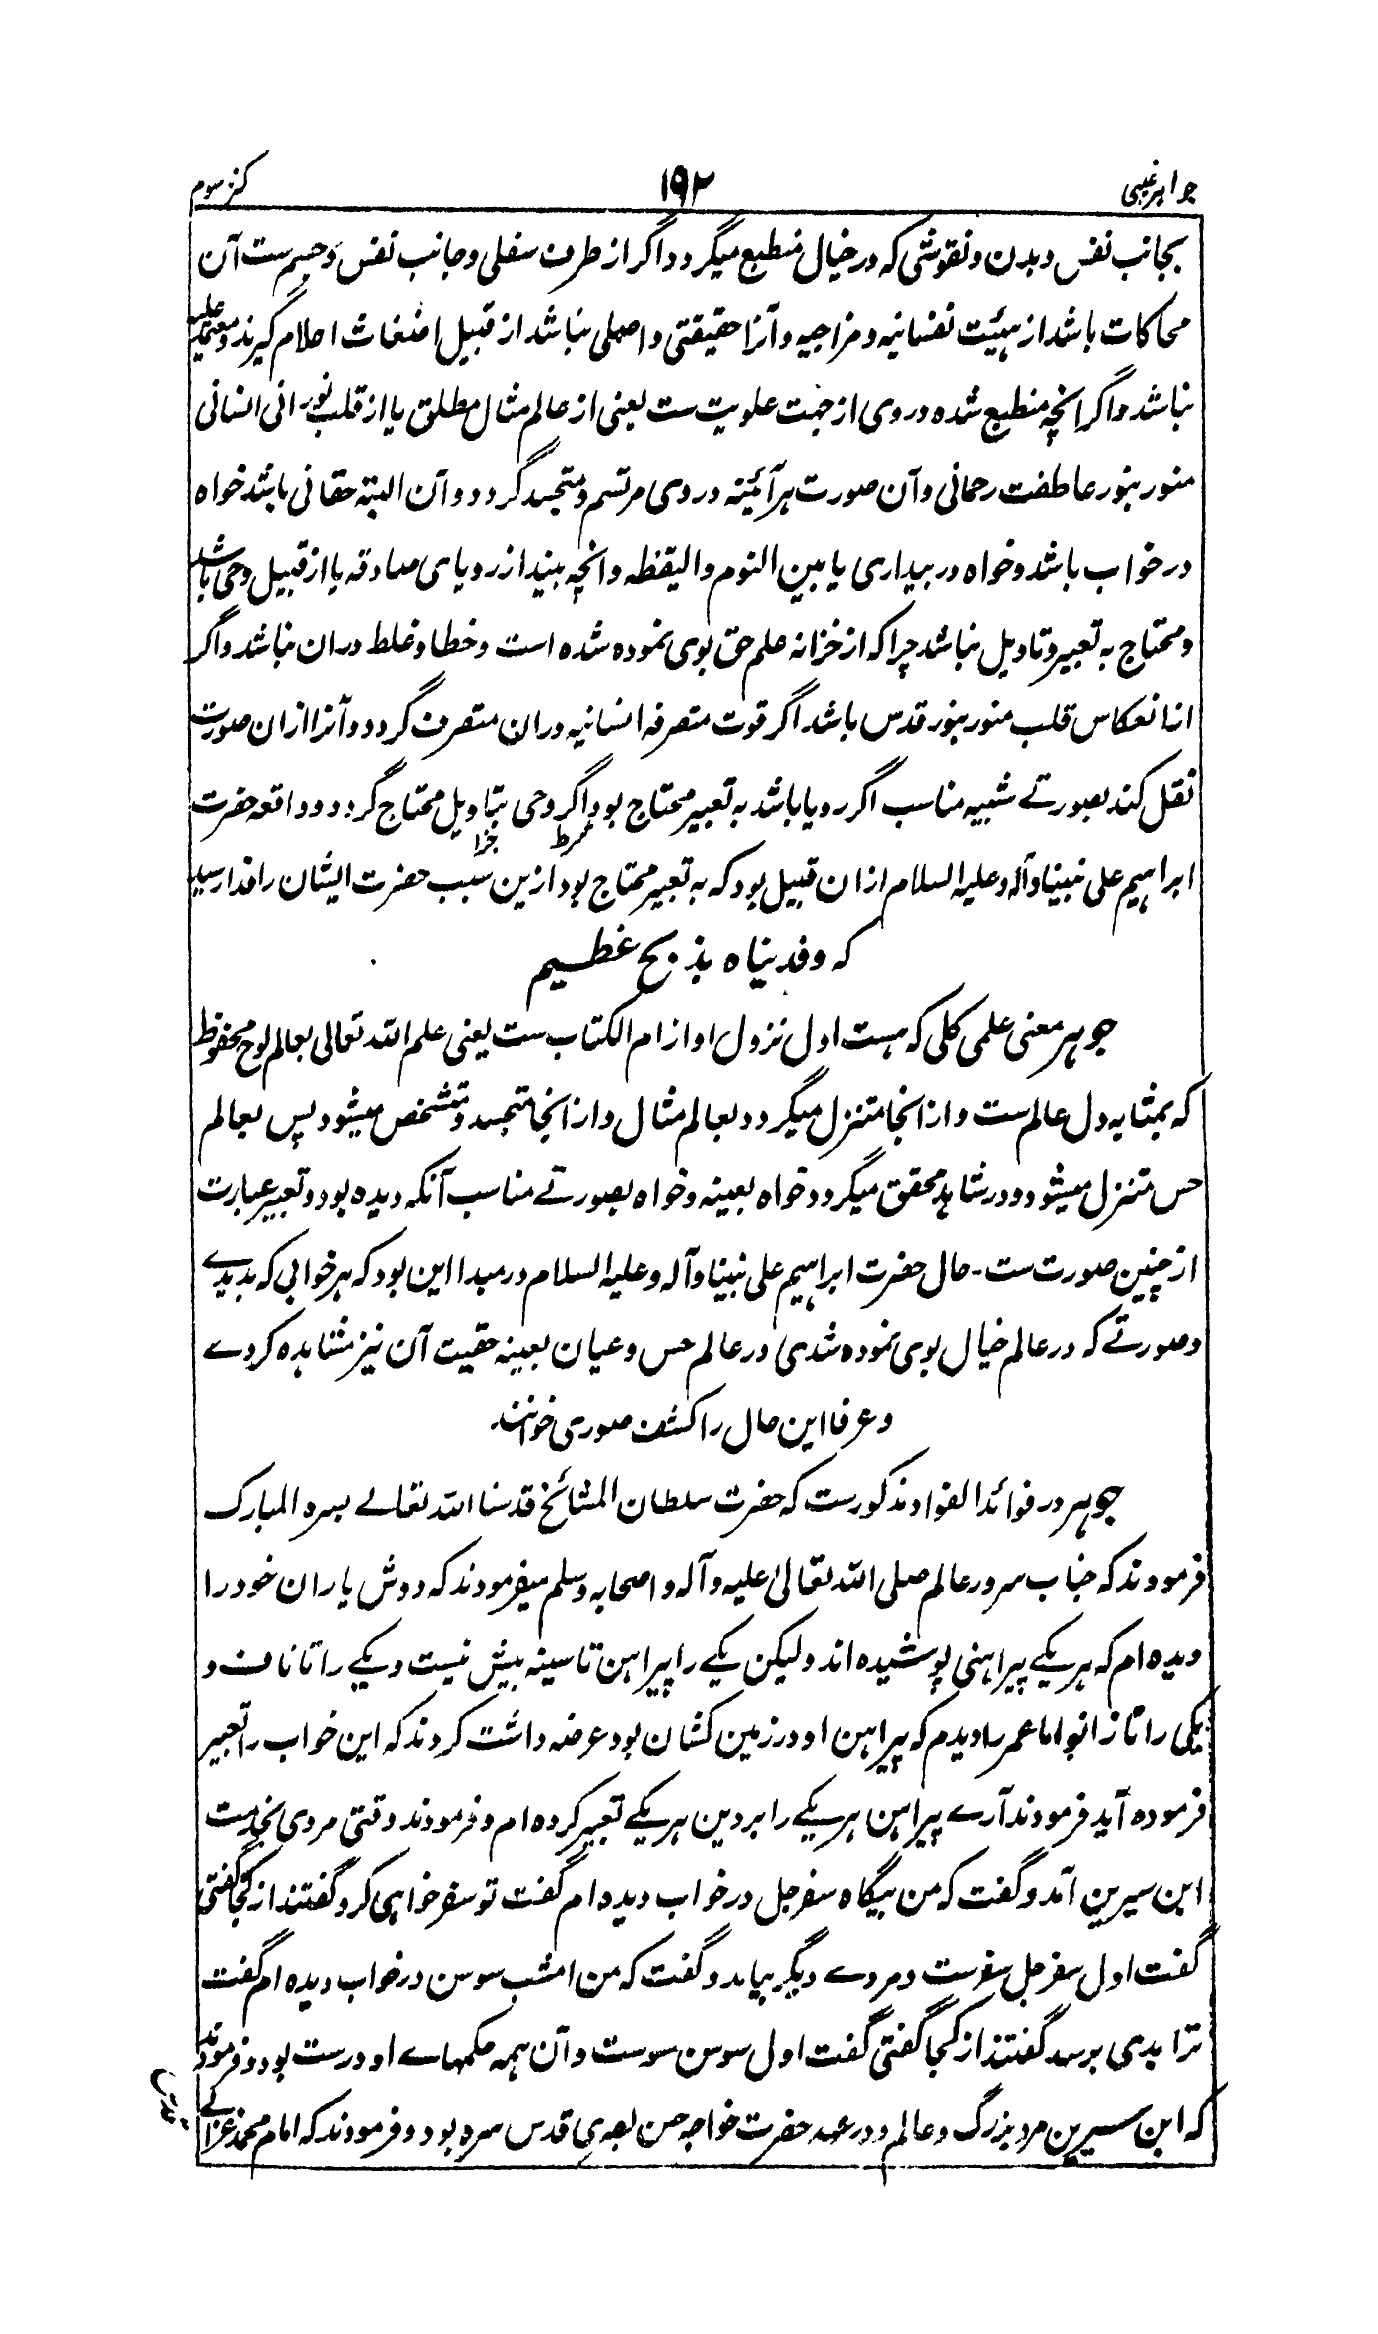 جواہر غیبی
۱۹۲
کنز سوم
بجانب نفس و بدن و نقوشی کہ در خیال منطبع میگردد اگر از طرف سفلی و جانب نفس و جسم ست آن
محاکات باشد از ہیئت نفسانیہ و مزاجیہ و آنرا حقیقتی و اصلی نباشد از قبیل اضغاث احلام گیرند و معتمد علیہ
نباشد و اگر انچہ منطبع شدہ در وی از جہت علویت ست یعنی از عالم مثال مطلق یا از قلب نورانی انسانی
منور بنور عاطفت رحمانی و آن صورت ہر آئینہ در وی مرتسم و متجسد گردد و آن البتہ حقانی باشد خواہ
در خواب باشد و خواہ در بیداری یا بین النوم والیقظہ و انچہ بیند از رویای صادقہ یا از قبیل وحی باشد
و محتاج بہ تعبیر و تاویل نباشد چرا کہ از خزانہ علم حق بوی نمودہ شدہ است و خطا و غلط دران نباشد و اگر
از انعکاس قلب منور بنور قدس باشد اگر قوت متصرفہ انسانیہ دران متصرف گردد و آنرا ازان صورت
نقل کند بصورتے شبیہ مناسب اگر رویا باشد بہ تعبیر محتاج بود اگر وحی بتاویل محتاج گردد و واقعہ حضرت
شرط جزا
ابراہیم علی نبینا و آلہ و علیہ السلام ازان قبیل بود کہ بہ تعبیر محتاج بود ازین سبب حضرت ایشان را فدا رسید
کہ و فدیناہ بذبح عظیم
جوہر معنی علمی کلی کہ ہست اول نزول او از ام الکتاب ست یعنی علم اللہ تعالی بعالم لوح محفوظ
کہ بمثابہ دل عالم ست و ازانجا متنزل میگردد بعالم مثال و ازانجا متجسد و متشخص میشود پس بعالم
حس متنزل میشود و در شاہد محقق میگردد خواہ بعینہ و خواہ بصورتے مناسب آنکہ دیدہ بود و تعبیر عبارت
از چنین صورت ست - حال حضرت ابراہیم علی نبینا و آلہ و علیہ السلام در مبدا این بود کہ ہر خوابی کہ بدیدے
و صورتے کہ در عالم خیال بوی نمودہ شدی در عالم حس و عیان بعینہ حقیت آن نیز مشاہدہ کردے
و عرفا این حال را کشف صوری خوانند
جوہر در فوائد الفواد مذکورست کہ حضرت سلطان المشائخ قدسنا اللہ تعالے بسرہ المبارک
فرمودند کہ جناب سرور عالم صلی اللہ تعالیٰ علیہ و آلہ و اصحابہ وسلم میفرمودند کہ دوش یاران خود را
دیدہ ام کہ ہر یکے پیراہنی پوشیدہ اند ولیکن یکے را پیراہن تا سینہ بیش نیست و یکے را تا ناف و
یکی را تا زانو اما عمر را دیدم کہ پیراہن او در زمین کشان بود عرضہ داشت کردند کہ این خواب را تعبیر
فرمودہ آید فرمودند آرے پیراہن ہر یکے را بر دین ہر یکے تعبیر کردہ ام و فرمودند وقتی مردی بخدمت
ابن سیرین آمد و گفت کہ من بیگاہ سفرجل در خواب دیدہ ام گفت تو سفر خواہی کرد گفتند از کجا گفتی
گفت اول سفرجل سفرست و مردے دیگر بیامد و گفت کہ من امشب سوسن در خواب دیدہ ام گفت
ترا بدی برسد گفتند از کجا گفتی گفت اول سوسن سوست و آن ہمہ حکمہاے او درست بود و فرمودند
کہ ابن سیرین مرد بزرگ و عالم و در عہد حضرت خواجہ حسن بصری قدس سرہ بود و فرمودند کہ امام محمد غزالے